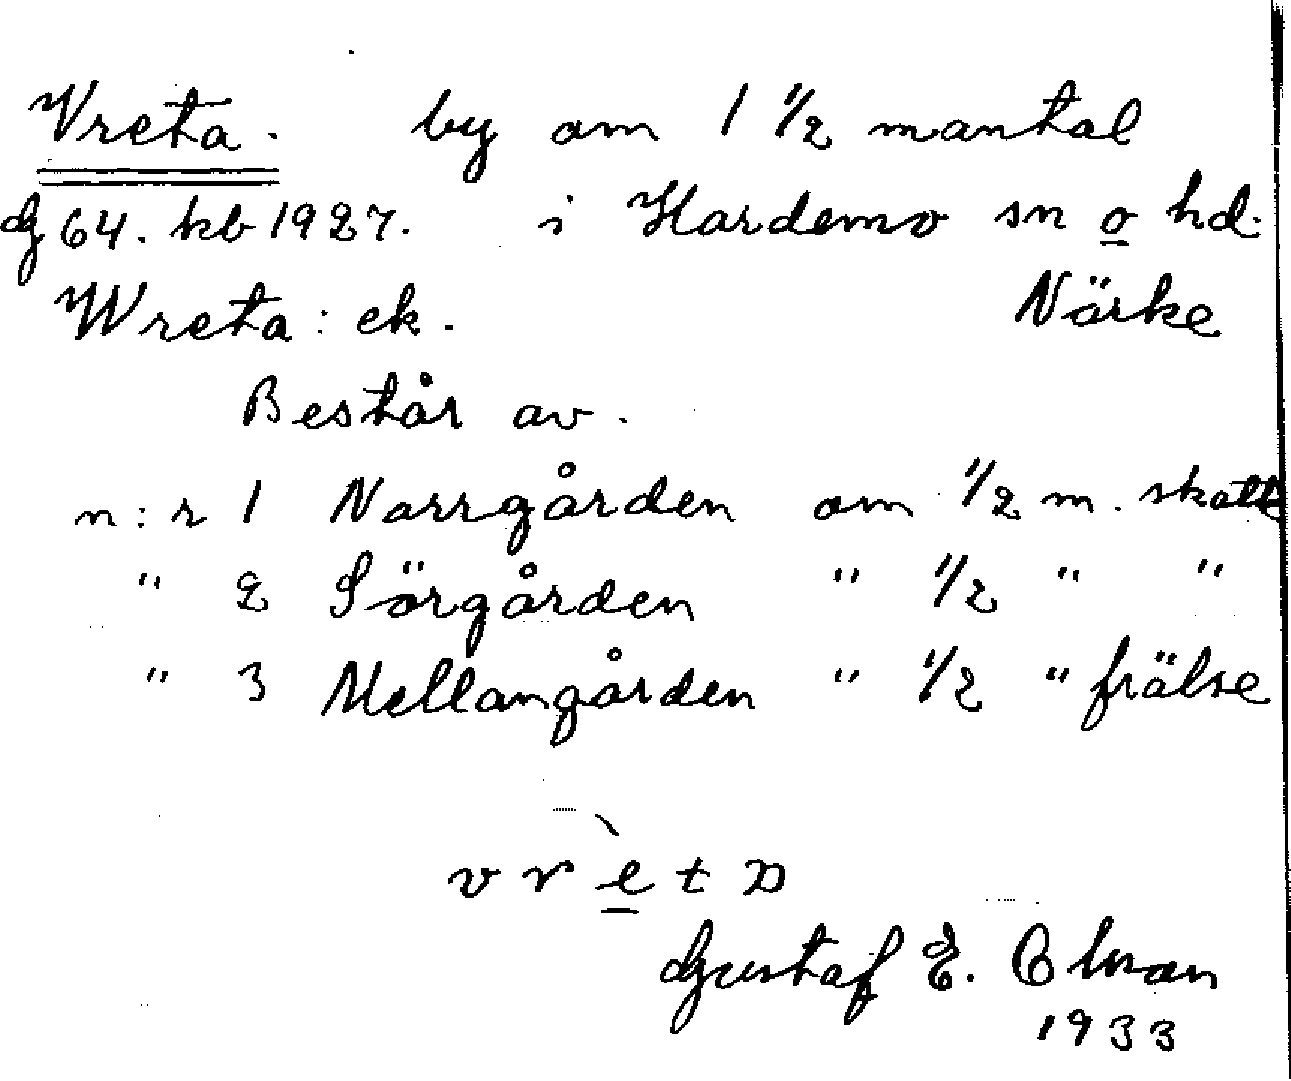 Vreta. by om 1 1/2 mantal
G 64. kb 1927. i Hardemo sn o hd.
Wreta: ek. Närke
Består av.
n:r 1 Norrgården om 1/2 m. skatte
" 2 Sörgården " 1/2 " "
" 3 Mellangården " 1/2 " frälse
v r è t
Gustaf E.
1933